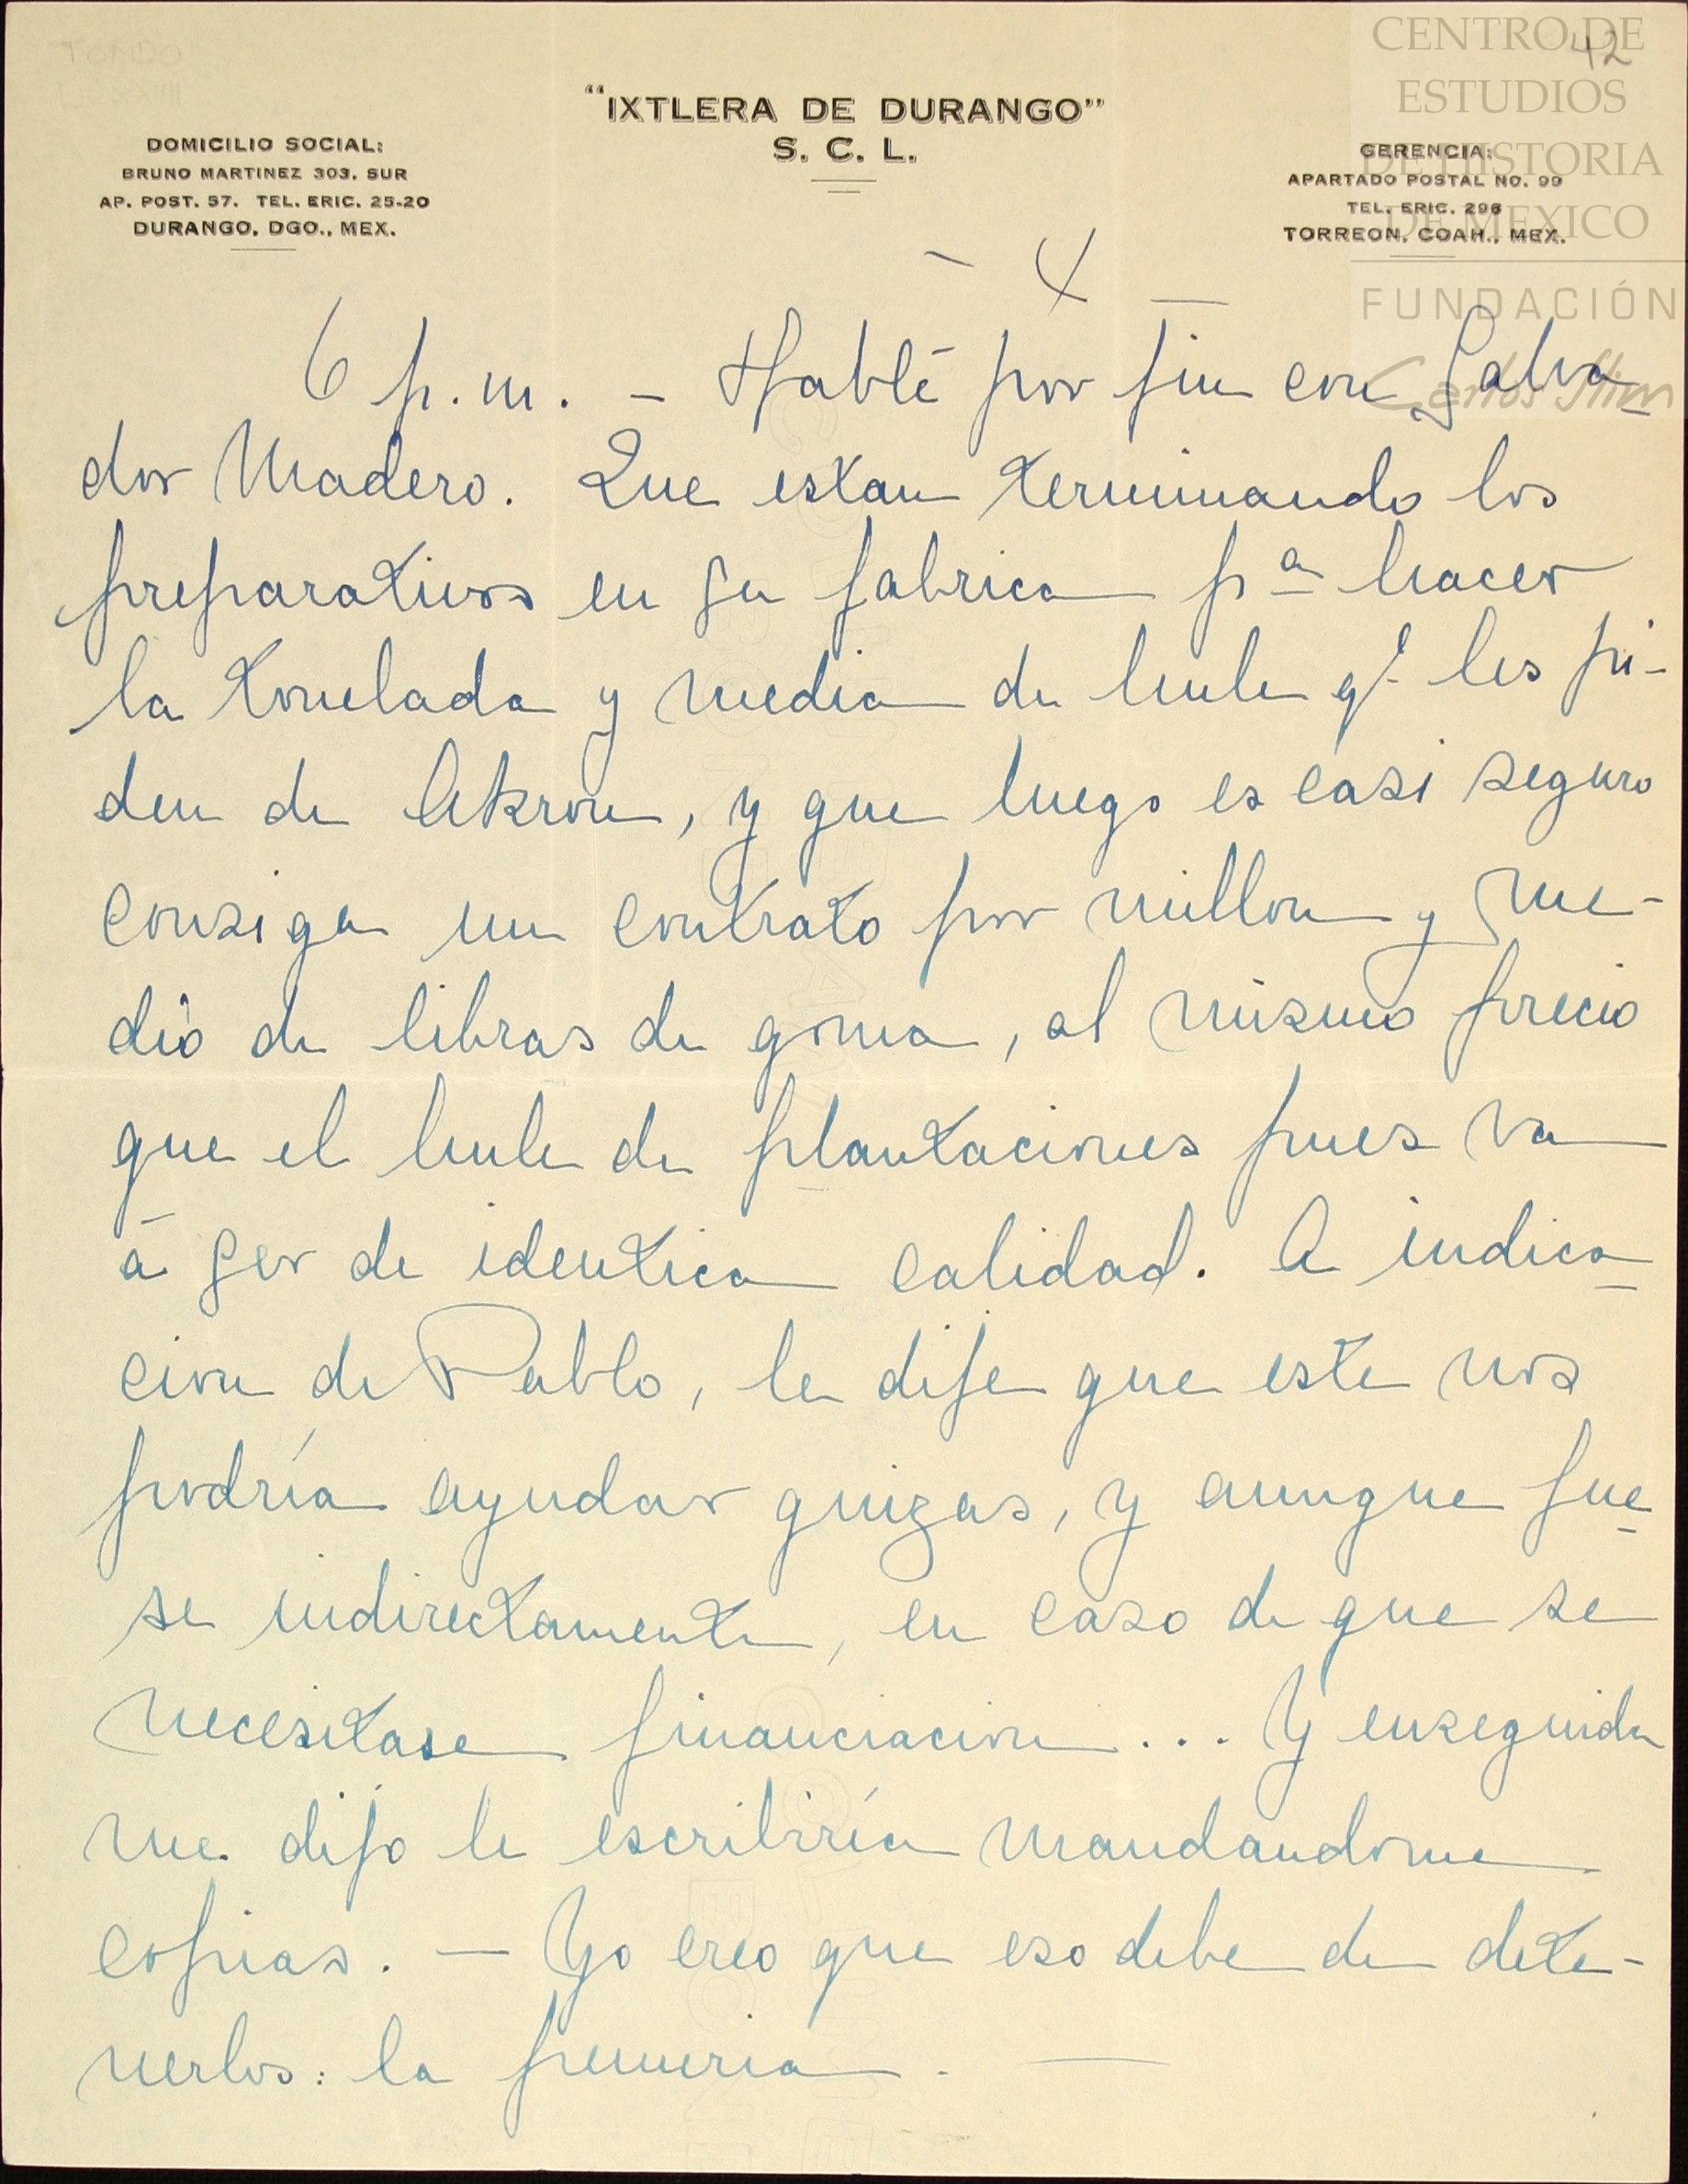 CENTRO DE
ESTUDIOS
DE HISTORIA
DE MEXICO
FUNDACIÓN
Carlos Slim
42
"IXTLERA DE DURANGO"
S. C. L.
DOMICILIO SOCIAL:
BRUNO MARTINEZ 303. SUR
AP. POST. 57. TEL. ERIC. 25-20
DURANGO, DGO., MEX.
GERENCIA:
APARTADO POSTAL NO. 99
TEL. ERIC. 296
TORREON, COAH., MEX.
- 4 -
6 p.m. - Hablé por fin con Salva-
dor Madero. Que estan terminando los
preparativos en su fabrica pª hacer
la tonelada y media de hule q' les pi-
den de Akron, y que luego es casi seguro
consiga un contrato por millon y me-
dio de libras de goma, al mismo precio
que el hule de plantaciones pues va
á ser de identica calidad. A indica-
cion de Pablo, le dije que este nos
podría ayudar quizas, y aunque fue-
se indirectamente, en caso de que se
necesitase financiacion... Y enseguida
me dijo le escribiría mandandome
copias. - Yo creo que eso debe de dete-
nerlos: la penuria. -